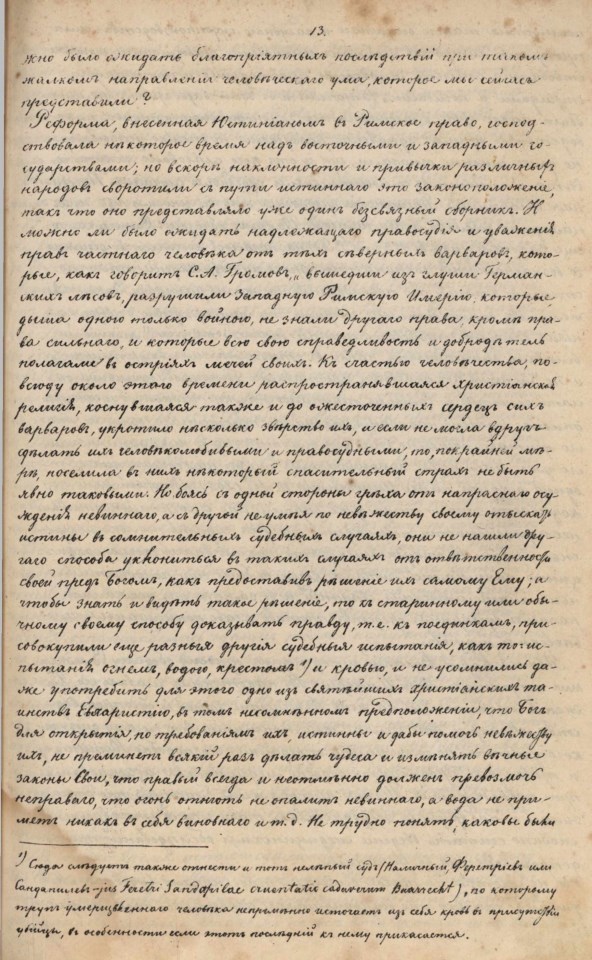 13.
жно было ожидать благопріятныхъ послѣдствій при такомъ
жалкомъ направленіи человѣческаго ума, которое мы сейчасъ
представили?
Реформа, внесенная Юстиніаномъ въ Римское право, господ-
ствовала нѣкоторое время надъ восточными и западными го-
сударствами; но вскорѣ наклонности и привычки различныхъ
народовъ своротили съ пути истиннаго это законоположеніе,
такъ что оно представляло уже одинъ безсвязный сборникъ. И
можно ли было ожидать надлежащаго правосудія и уваженія
правъ частнаго человѣка отъ тѣхъ сѣверныхъ варваровъ, кото-
рые, какъ говоритъ С.А. Громовъ, „вышедши изъ глуши Герман-
скихъ лѣсовъ, разрушили Западную Римскую Имперію, которые,
дыша одного только войного, не знали другаго права, кромѣ пра-
ва сильнаго, и которые всю свою справедливость и добродѣтель
полагали въ остріяхъ мечей своихъ. Къ счастью человѣчества, по-
всюду около этаго времени распространявшаяся христіанская
религія, коснувшаяся также и до ожесточенныхъ сердецъ сихъ
варваровъ, укротило нѣсколько звѣрство ихъ, и если не могла вдругъ
сдѣлать ихъ человѣколюбивыми и правосудными, то, покрайней мѣ-
рѣ, поселила въ нихъ нѣкоторый спасительный страхъ не быть
явно таковыми. Но боясь съ одной стороны грѣха отъ напраснаго осу-
жденія невиннаго, а съ другой не умѣя по невѣжеству своему отыскать
истины въ сомнительныхъ судебныхъ случаяхъ, они не нашли дру-
гаго способа уклониться въ такихъ случаяхъ отъ отвѣтственности
своей предъ Богомъ, какъ предоставивъ рѣшеніе ихъ самому Ему; а
чтобы знать и видѣть такое рѣшеніе, то къ старинному или обы-
чному своему способу доказывать правду, т.е. къ поединкамъ, при-
совокупили еще разныя другія судебныя испытанія, какъ то: ис-
пытанія огнемъ, водою, крестомъ ¹) и кровью, и не усомнились да-
же употребить для этого одно изъ святѣйшихъ христіанскихъ та-
инствъ Евхаристію, въ томъ несомнѣнномъ предположеніи, что Богъ
для открытія, по требованіямъ ихъ, истины и дабы помочь невѣжеству
ихъ, не преминетъ всякій разъ дѣлать чудеса и измѣнять вѣчные
законы Свои, что правый всегда и неотмѣнно долженъ превозмочь
неправаго, что огонь отнюдь не опалитъ невиннаго, а вода не при-
метъ никакъ въ себя виновнаго и т.д. Не трудно понять, каковы были
¹) Сюда слѣдуетъ также отнести и тотъ нелѣпый судъ (Наличный, Феретріевъ или
Сандапилевъ - jus Feretri Sandapilae cruentatis cadaverum Baarrecht), по которому
трупъ умерщвленнаго человѣка непремѣнно источаетъ изъ себя кровь въ присутствіи
убійцы, въ особенности если этотъ послѣдній къ нему прикасается.